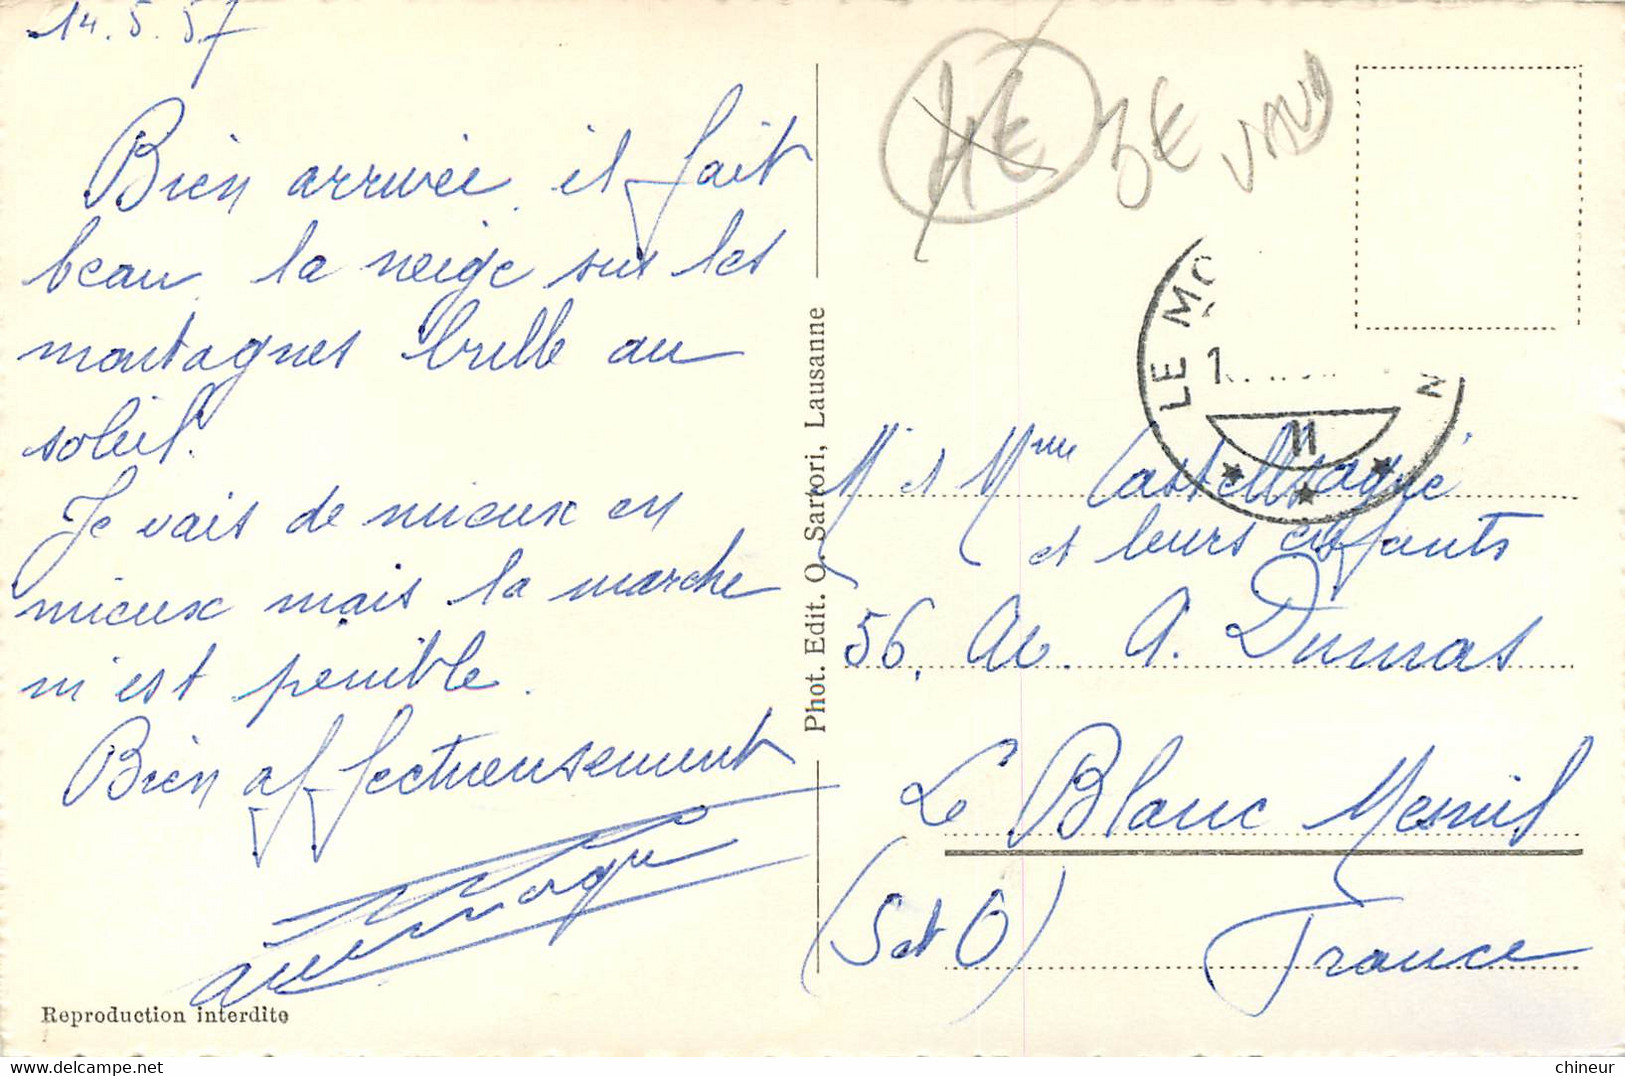 14.5.57
Bien arrivée, il fait
beau, la neige sur les
montagnes brille au
soleil.
Je vais de mieux en
mieux mais la marche
m'est penible.
Bien affectueusement
Reproduction interdite
Phot. Edit. O. Sartori, Lausanne
4€ 3€ VAUD
LE MO
1
N
11
M et Mme Castellsagué
et leurs enfants
56, Av. A. Dumas
Le Blanc Mesnil
(S et O) France
chineur